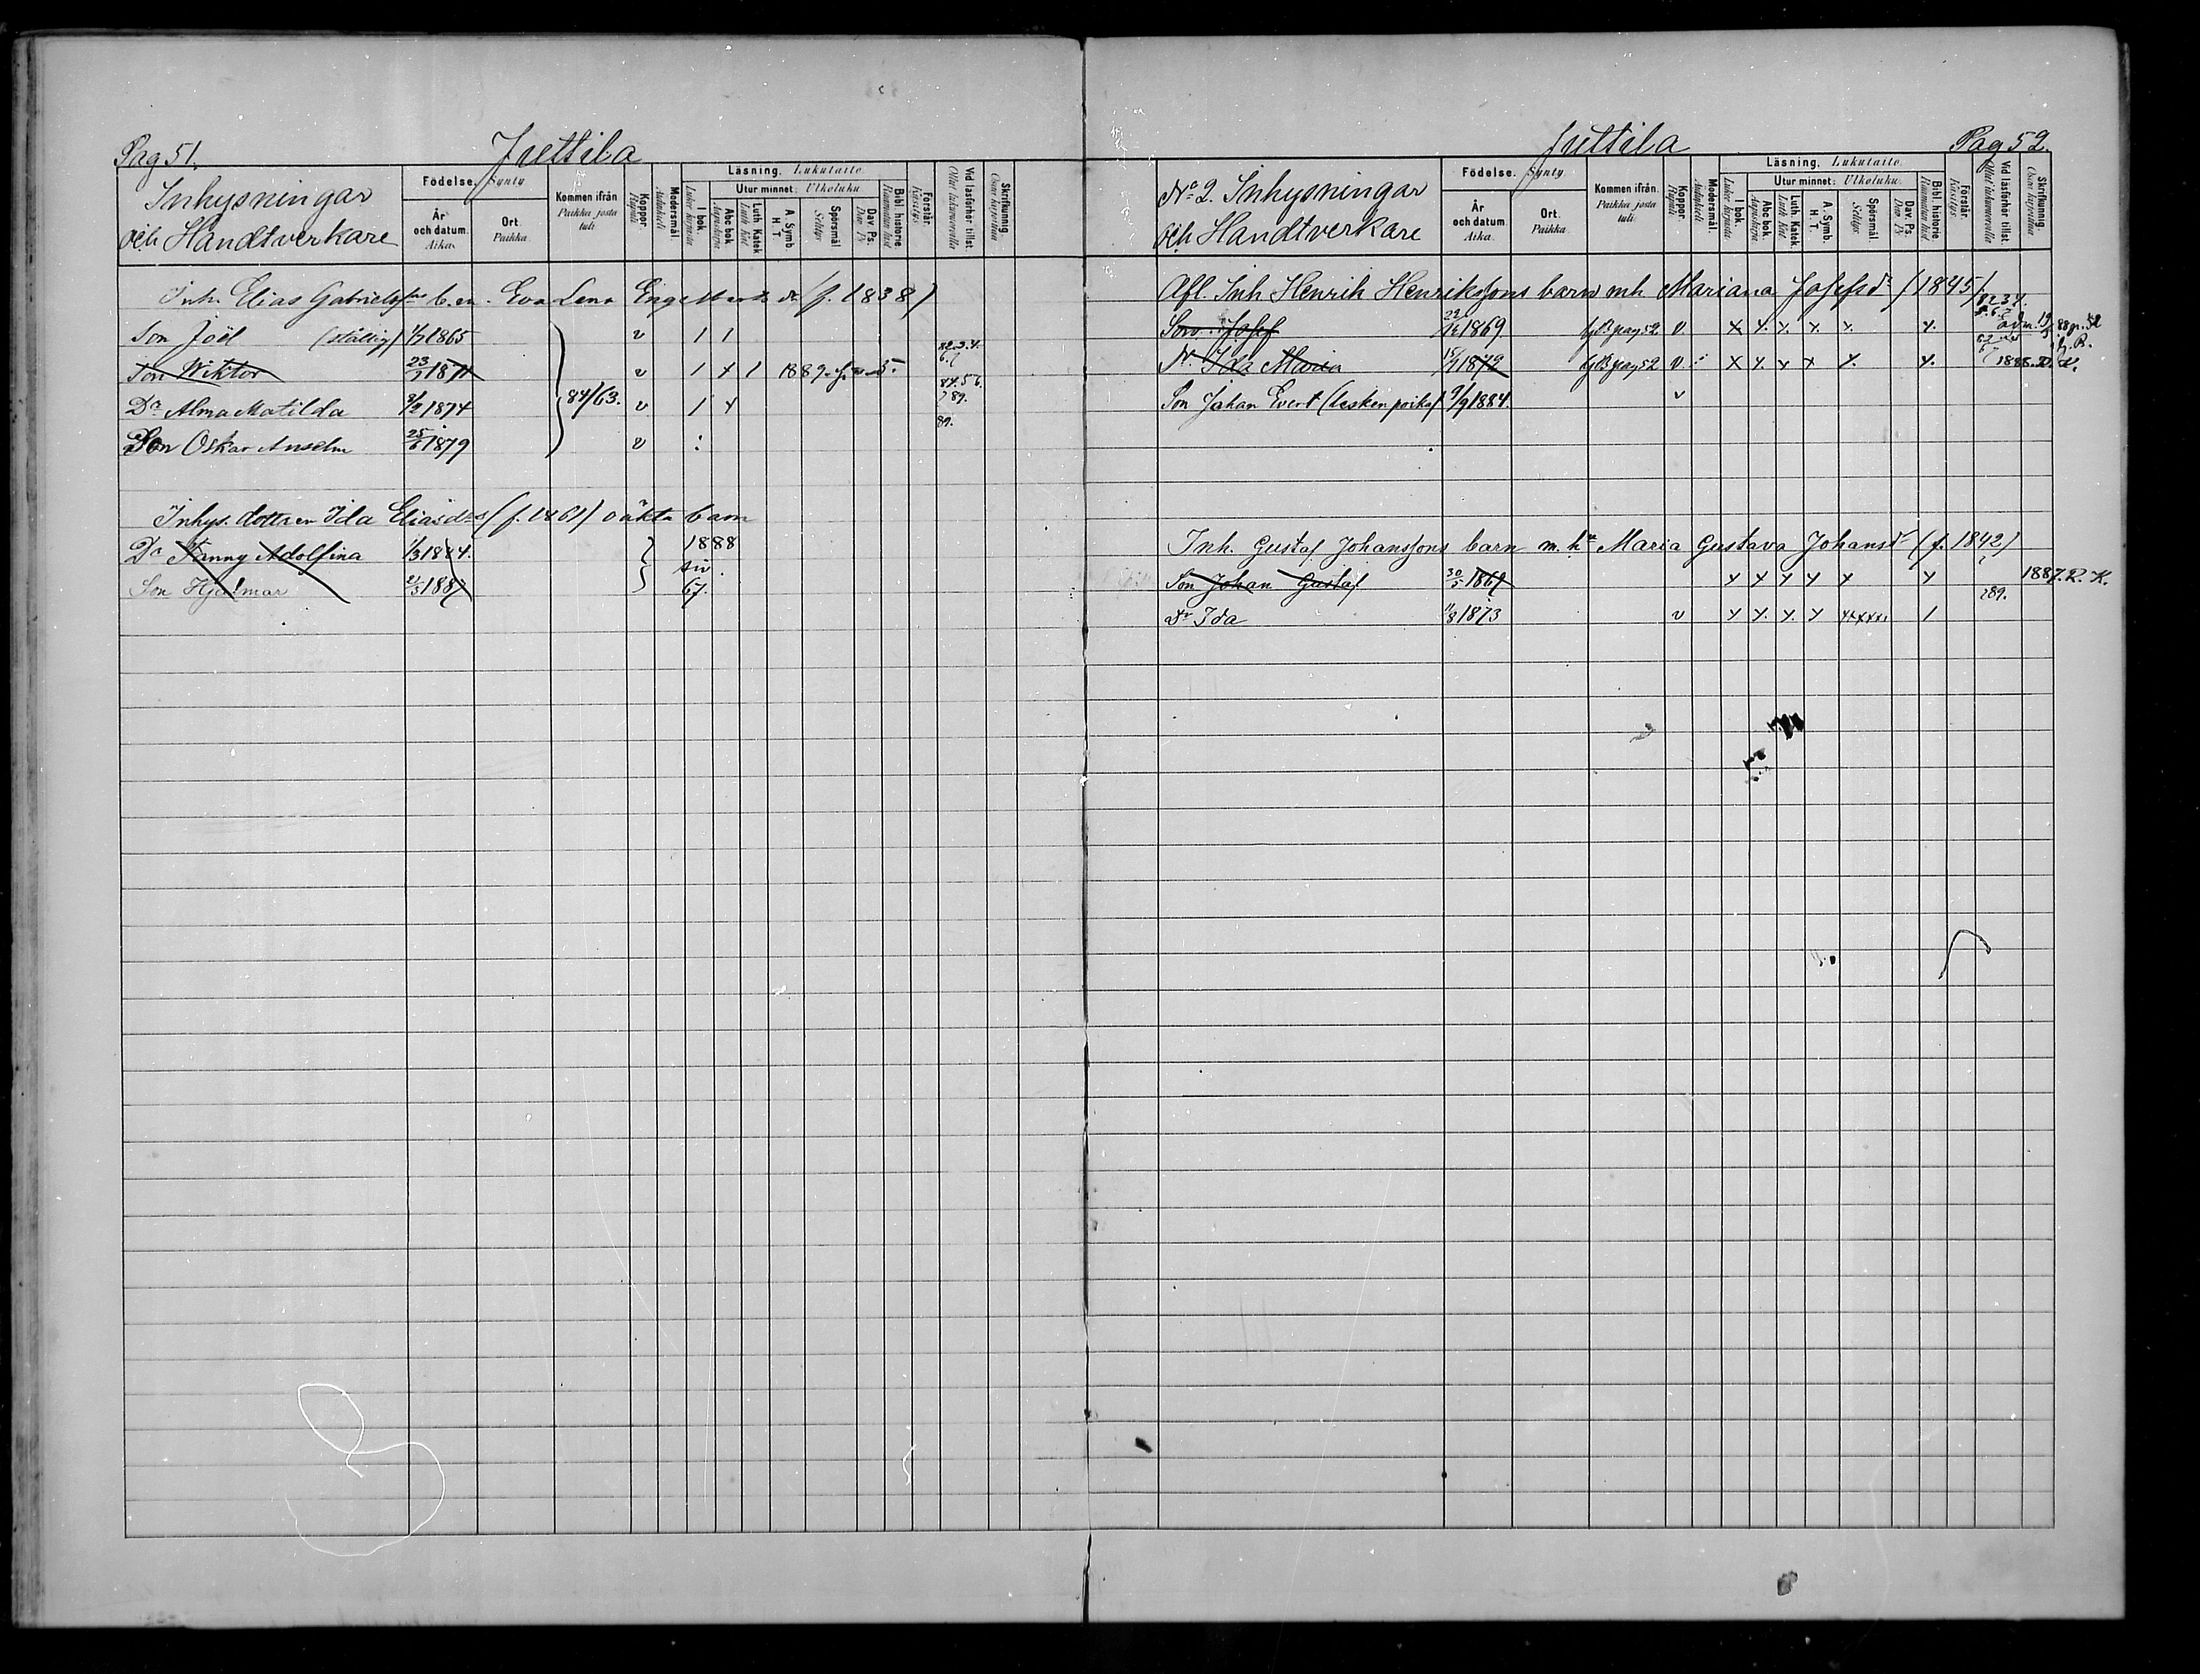 Pag 51. Juttila
Inhysningar
och Handtverkare
Födelse. Synty
År och datum. Aika.
Ort. Paikka.
Kommen ifrån Paikka josta tuli
Koppor. Rupuli
Modersmål. Äidinkieli
Läsning. Lukutaito
I bok. Lukee kirjasta
Utur minnet: Ulkoluku
Abc bok Aapiskirja
Luth. Katek
A. Symb. H T
Spörsmål Selitys
Dav. Ps. Dav Ps
Bibl. historie Raamatun hist
Förstår. Käsitys
Vid läsförhör tillst. Ollut lukuvuorolla
Skrifkunnig. Osaa kirjoittaa
Inh. Elias Gabrielssons b. m. Eva Lena Engelbrts dr (f. 1838)
Son Joël 1865 v / /
Son Wiktor 23/ 1871 v / x / 1889
Dr Alma Matilda 1874 84/63. v / x
Son Oskar Anselm 25/6 1879 v
Inhys. dottren Ida Eliasdrs (f. 1861) oäkta barn
Dr Fanny Adolfina 1/3 1884. 1888
Son Hjalmar 21/3 1887 67.
Juttila Pag 52.
No 2. Inhysningar
och Handtverkare
Födelse. Synty
År och datum. Aika.
Ort. Paikka.
Kommen ifrån. Paikka josta tuli
Koppor. Rupuli
Modersmål. Äidinkieli
Läsning. Lukutaito
I bok. Lukee kirjasta
Utur minnet: Ulkoluku.
Abc bok. Aapiskirja
Luth. Katek.
A. Symb. H. T.
Spörsmål. Selitys
Dav. Ps. Dav Ps
Bibl. historie Raamatun hist
Förstår. Käsitys
Vid läsförhör tillst. Ollut lukuvuorolla
Skrifkunnig. Osaa kirjoittaa
Afl. Inh Henrik Henrikssons barn mh Mariana Josefsdr (1845)
Son Josef 22/12 1869. Bpag 52 v x x. x. x. x. x.
Dr Ida Maria 15/ 1872 Bpag 52 v x x. x x x. x. 1888. R. K.
Son Johan Evert (lesken poika) 9/9 1884. v
Inh. Gustaf Johanssons barn m. hu Maria Gustava Johansdr (f. 1842)
Son Johan Gustaf 30/5 1867 x x x x x x 1887. R. K.
Dr Ida 11/8 1873 v x x. x. x xxxxx / 89.